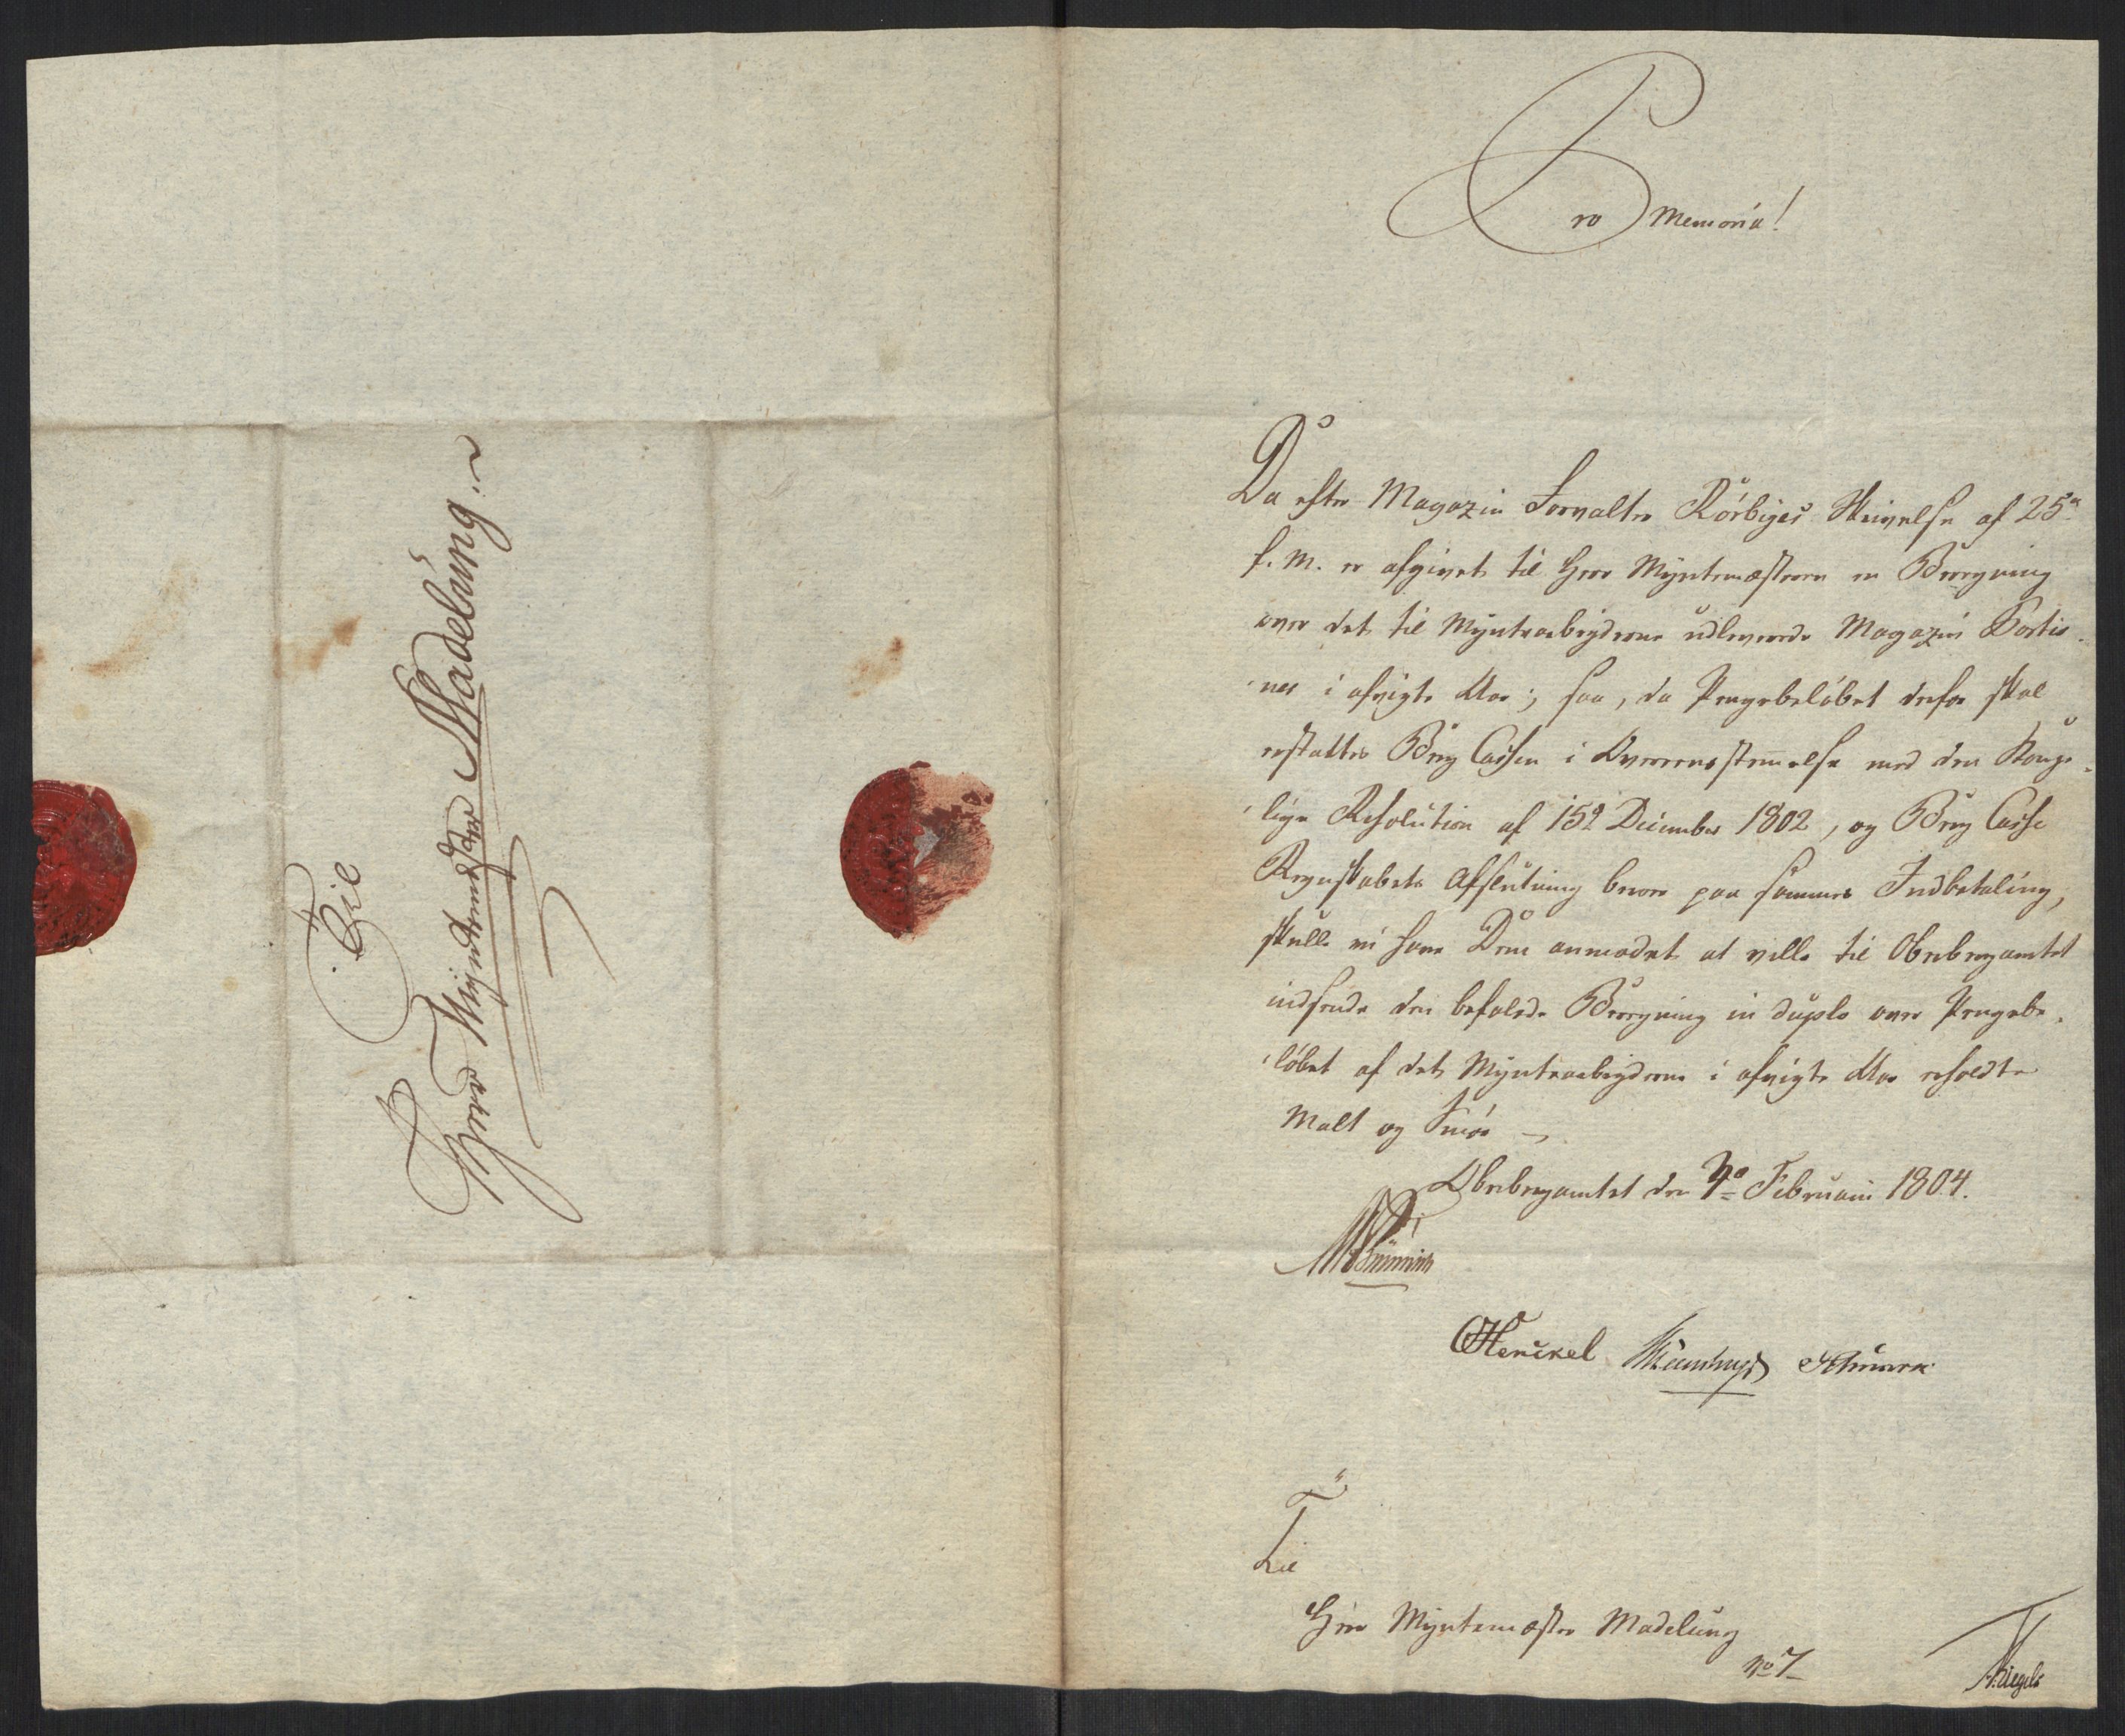 Til
Herr Myntemester Madelung.
Pro Memoria!
Da efter Magazin Forvalter Rörbyes Skrivelse af 25de
f. M. er afgivet til Herr Myntemæsteren en Beregning
over det til Myntearbeyderne udleverede Magazin Portio-
nes i afvigte Aar; saa, da Pengebelöbet derfor skal
erstattes Berg Cassen i Overeensstemmelse med den Konge-
lige Resolution af 15de December 1802, og Berg Casse
Regnskabets Afslutning beroer paa sammes Indbetaling,
skulle vi have Dem anmodet at ville til Oberbergamtet
indsende den befalede Beregning in duplo over Pengebe-
löbet af det Myntearbeyderne i afvigte Aar erholdte
Malt og Smör
Oberbergamtet den 7de Februarii 1804.
Henckel
Til
Herr Myntemæster Madelung
No 7